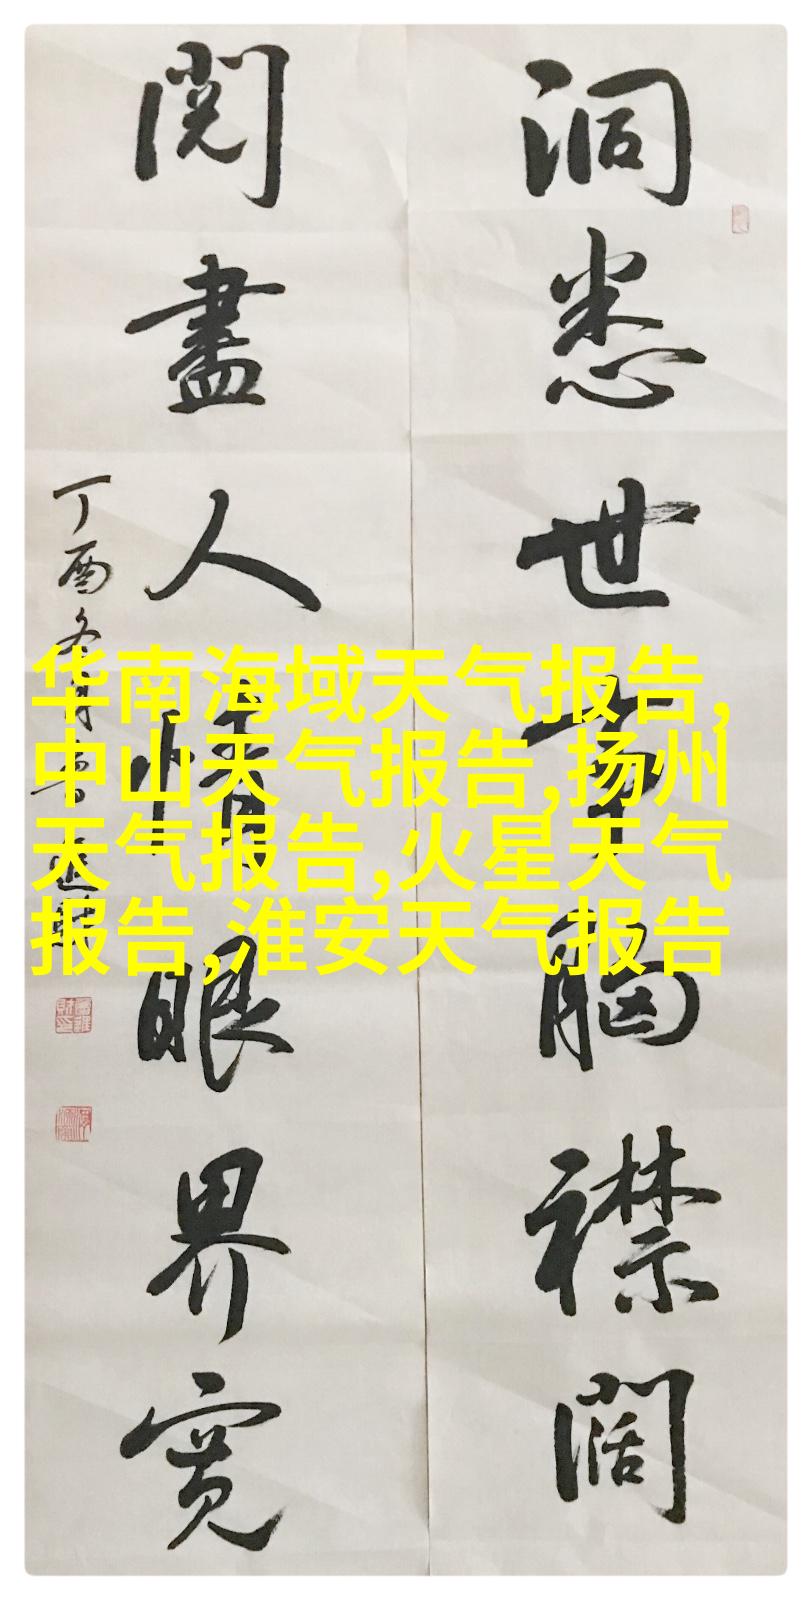 洞悉世事胸襟阔
阅盡人情眼界宽
丁酉冬月
华南海域天气报告,
中山天气报告,扬州
天气报告,火星天气
报告,淮安天气报告